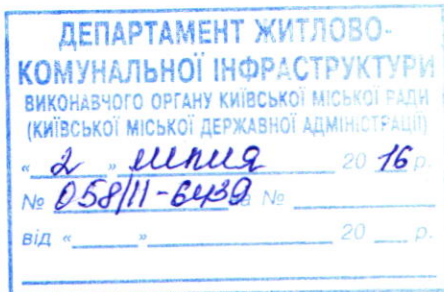 ДЕПАРТАМЕНТ ЖИТЛОВО-
КОМУНАЛЬНОЇ ІНФРАСТРУКТУРИ
ВИКОНАВЧОГО ОРГАНУ КИЇВСЬКОЇ МІСЬКОЇ РАДИ
(КИЇВСЬКОЇ МІСЬКОЇ ДЕРЖАВНОЇ АДМІНІСТРАЦІЇ)
« 2 » липня 20 16 р.
№ 058/11-6439 №
від « » 20 р.